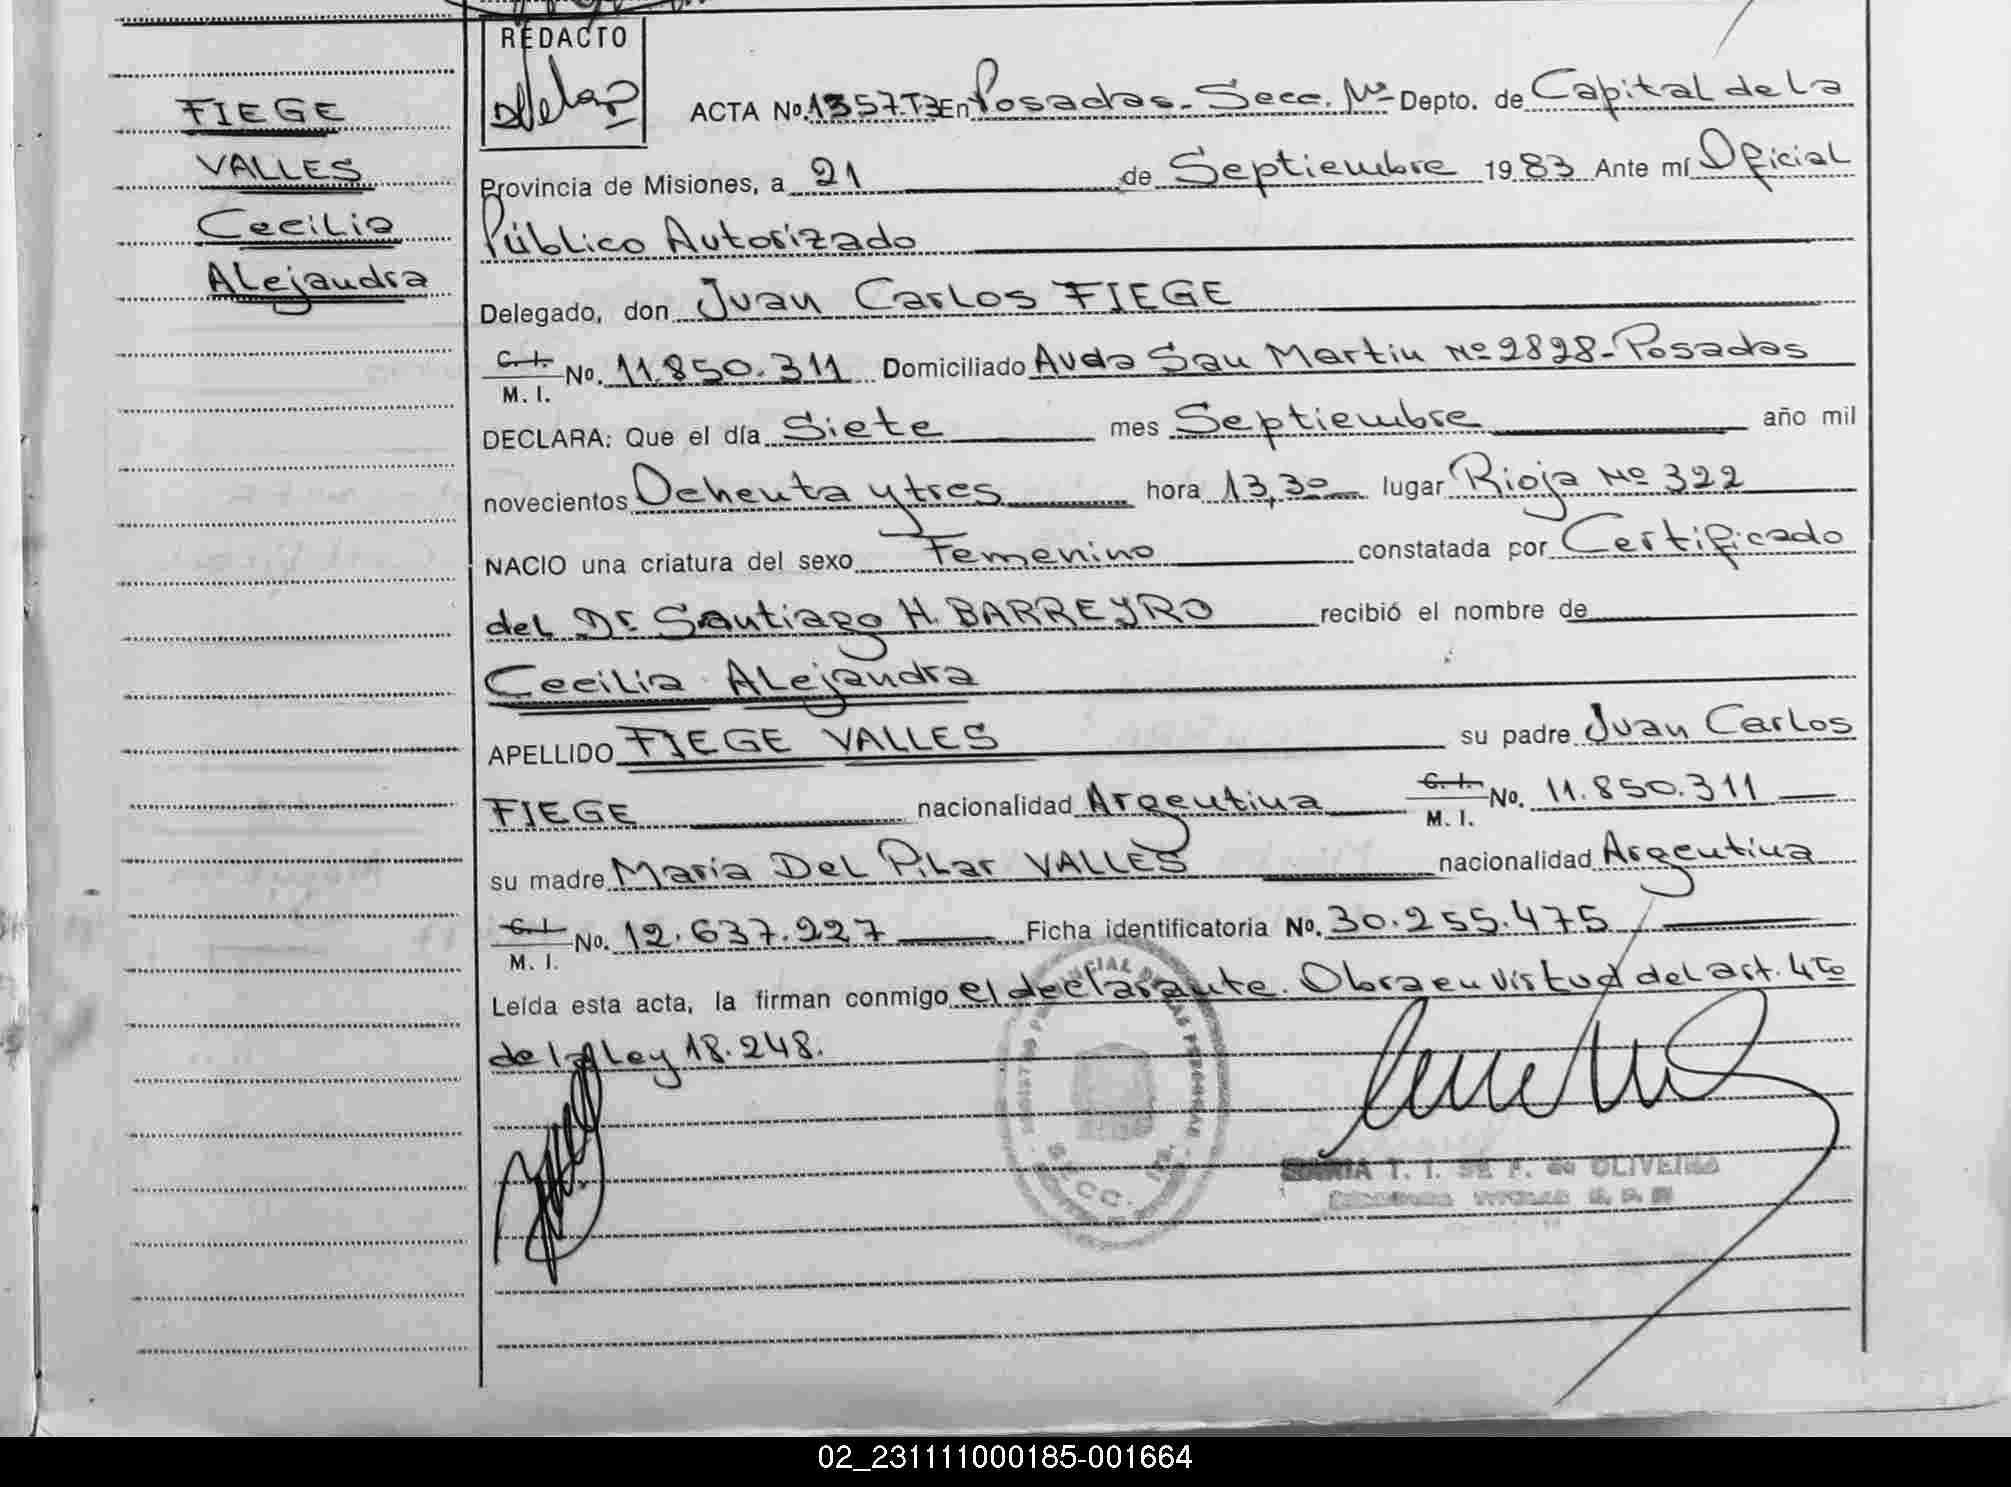 REDACTO
FIEGE
VALLES
Cecilia
Alejandra
ACTA No. 1357.T3 En Posadas - Secc. Depto. de Capital de la
Provincia de Misiones, a 21 de Septiembre 1983 Ante mí Oficial
Público Autorizado
Delegado, don Juan Carlos FIEGE
C. I. M. I. No. 11.850.311 Domiciliado Avda San Martin Nº 2828 - Posadas
DECLARA: Que el día Siete mes Septiembre año mil
novecientos Ochenta y tres hora 13,30 lugar Rioja Nº 322
NACIO una criatura del sexo Femenino constatada por Certificado
del Dr Santiago H. BARREYRO recibió el nombre de
Cecilia Alejandra
APELLIDO FIEGE VALLES su padre Juan Carlos
FIEGE nacionalidad Argentina C. I. M. I. No. 11.850.311
su madre María Del Pilar VALLES nacionalidad Argentina
C. I. M. I. No. 12.637.227 Ficha identificatoria No. 30.255.475
Leída esta acta, la firman conmigo el declarante. Obra en virtud del art. 4to
de la Ley 18.248.
REGISTRO PROVINCIAL DE LAS PERSONAS
SECC.
MARIA T. I. DE F. de OLIVEIRA
02_231111000185-001664